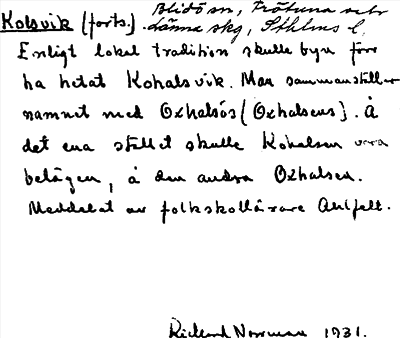 Blidö sn, Frötuna och
Kolsvik (forts.) Länna skg, Sthlms l.
Enligt lokal tradition skulle byn förr
ha hetat Kohalsvik. Man sammanställer
namnet med Oxhalsös (Oxhalsens). Å
det ena stället skulle Kohalsen vara
belägen, å den andra Oxhalsen.
Meddelat av folkskollärare Ahlfelt.
Rickard Norrman 1931.